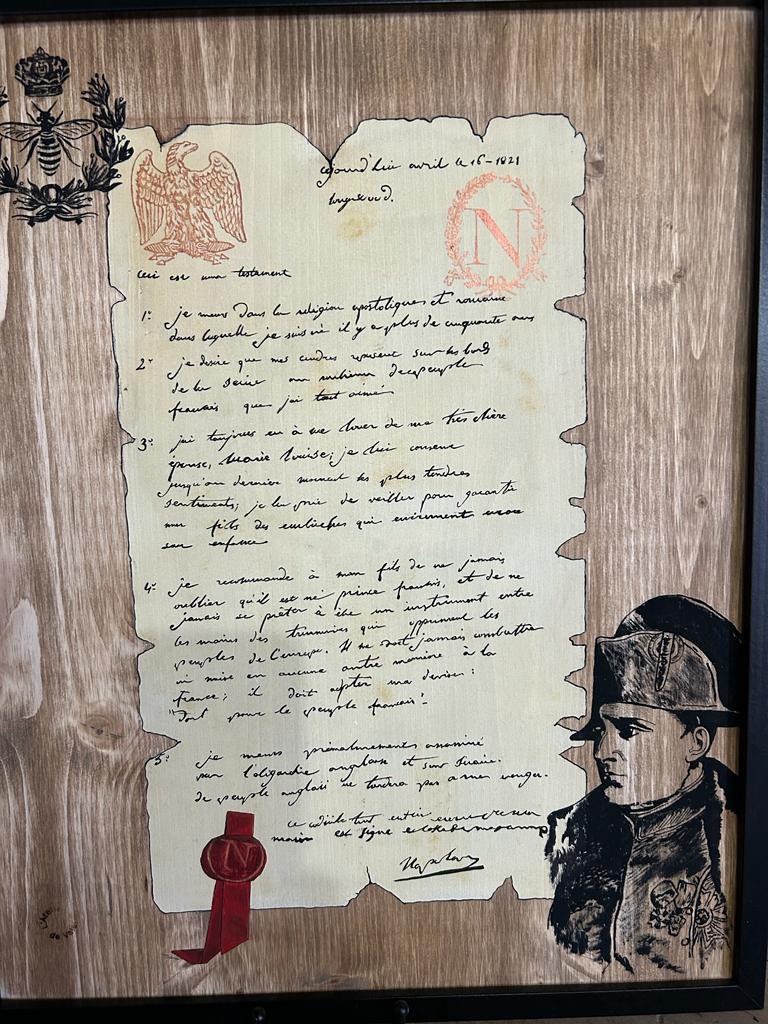 avril le 16-1821
N
ceci est mon testament
1° je meurs dans la religion apostolique et romaine
dans laquelle je suis né il y a plus de cinquante ans
2° je desire que mes cendres reposent sur les bords
de la Seine au milieu de ce peuple
francais que jai tant aimé
3° jai toujours eu à me louer de ma tres chère
épouse, Marie Louise; je lui conserve
jusqu'au dernier moment les plus tendres
sentiments; je la prie de veiller pour garantir
mon fils des embûches qui environnent encore
son enfance
4° je recommande à mon fils de ne jamais
oublier qu'il est né prince francais, et de ne
jamais se prêter à être un instrument entre
les mains des triumvirs qui oppriment les
peuples de l'europe. Il ne doit jamais combattre
ni nuire en aucune autre manière à la
france; il doit adopter ma devise:
"Tout pour le peuple francais"
5° je meurs prématurement assassiné
par l'oligarchie anglaise et son sicaire.
le peuple anglais ne tardera pas a me venger.
ce codicile tout entier
main est signé
Napoleon
N